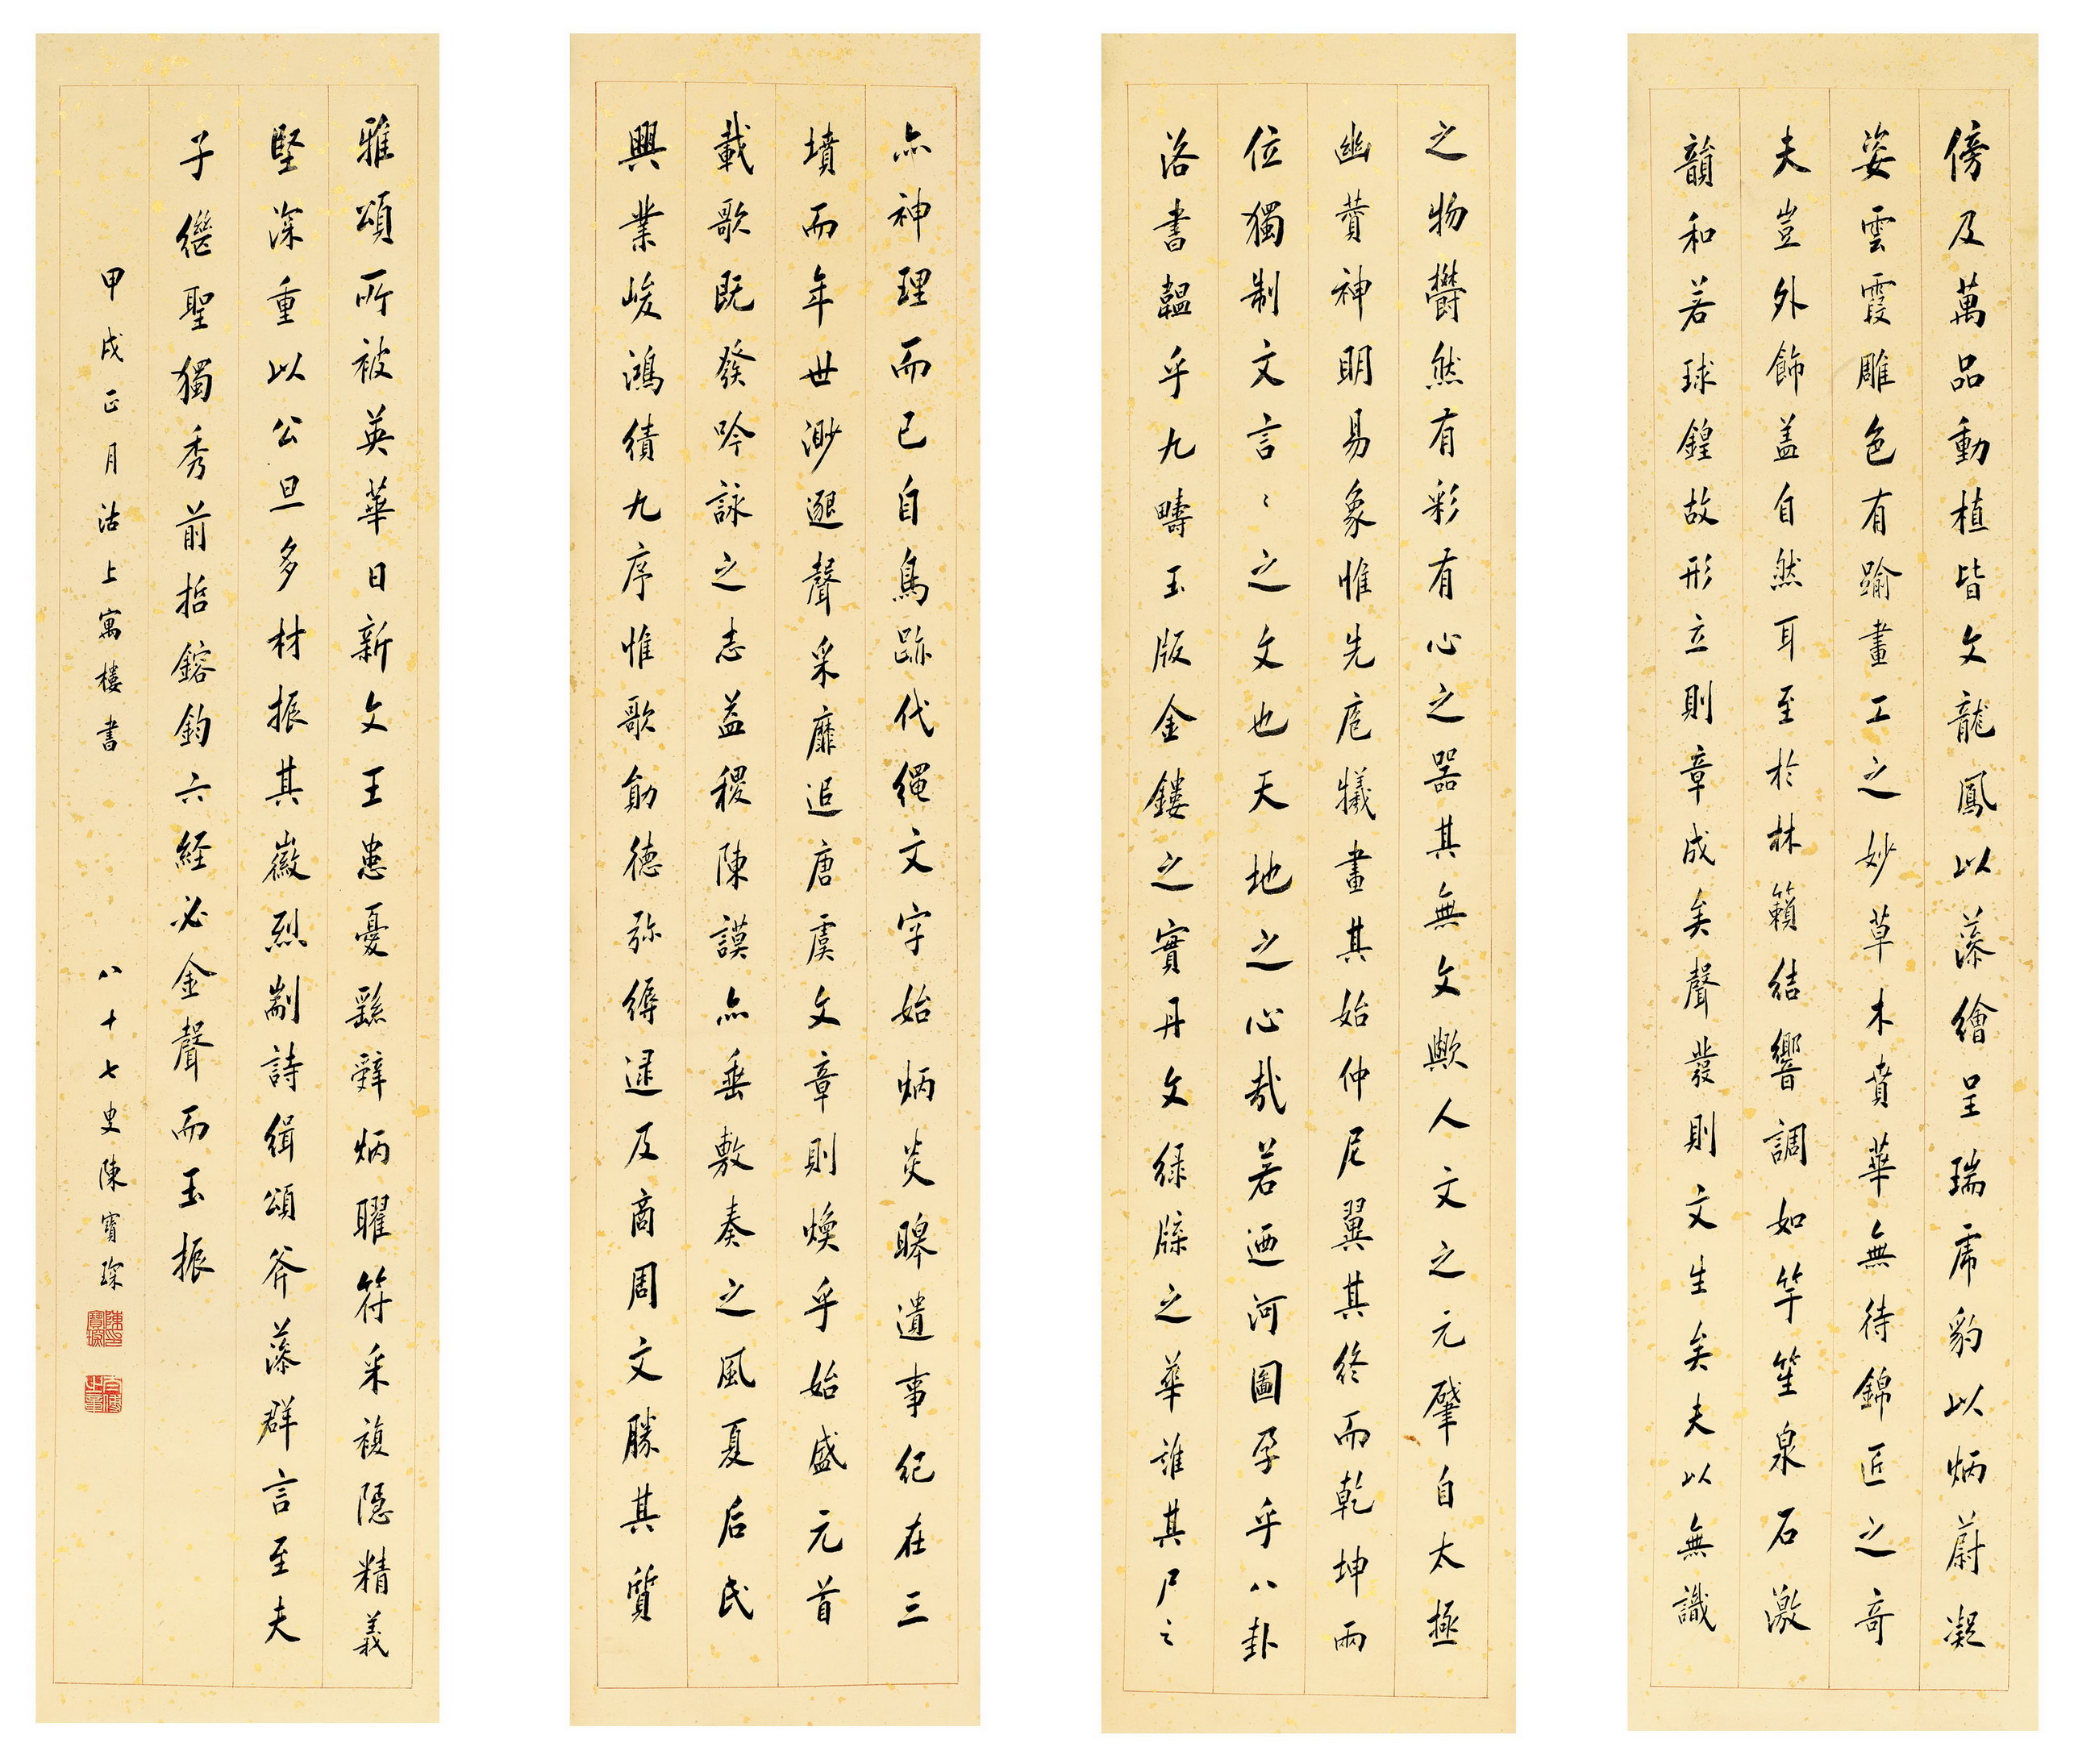 傍及萬品動植皆文龍鳳以藻繪呈瑞虎豹以炳蔚凝
姿雲霞雕色有踰畫工之妙草木賁華無待錦匠之奇
夫豈外飾盖自然耳至於林籟結響調如竽笙泉石激
韻和若球鍠故形立則章成矣聲發則文生矣夫以無識
之物鬱然有彩有心之器其無文歟人文之元肇自太極
幽贊神明易象惟先庖犧畫其始仲尼翼其終而乾坤兩
位獨制文言〻之文也天地之心哉若迺河圖孕乎八卦
洛書韞乎九疇玉版金鏤之實丹文綠牒之華誰其尸之
亦神理而已自鳥跡代繩文字始炳炎皞遺事紀在三
墳而年世渺邈聲采靡追唐虞文章則煥乎始盛元首
載歌既發吟詠之志益稷陳謨亦垂敷奏之風夏后氏
興業峻鴻績九序惟歌勛德弥縟逮及商周文勝其質
雅頌所被英華日新文王患憂繇辭炳曜符采複隱精義
堅深重以公旦多材振其徽烈剬詩緝頌斧藻群言至夫
子繼聖獨秀前哲鎔鈞六経必金聲而玉振
甲戌正月沽上寓樓書 八十七叟陳寶琛
陳印寶琛
太傅之章